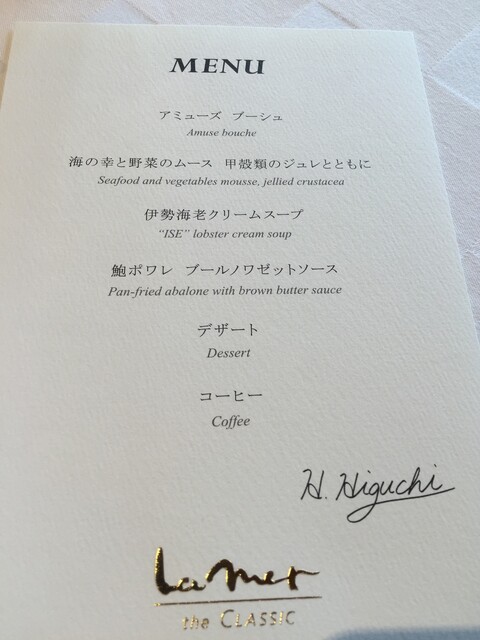 MENU
アミューズ ブーシュ
Amuse bouche
海の幸と野菜のムース 甲殻類のジュレとともに
Seafood and vegetables mousse, jellied crustacea
伊勢海老クリームスープ
“ISE” lobster cream soup
鮑ポワレ ブールノワゼットソース
Pan-fried abalone with brown butter sauce
デザート
Dessert
コーヒー
Coffee
H. Higuchi
La mer
the CLASSIC